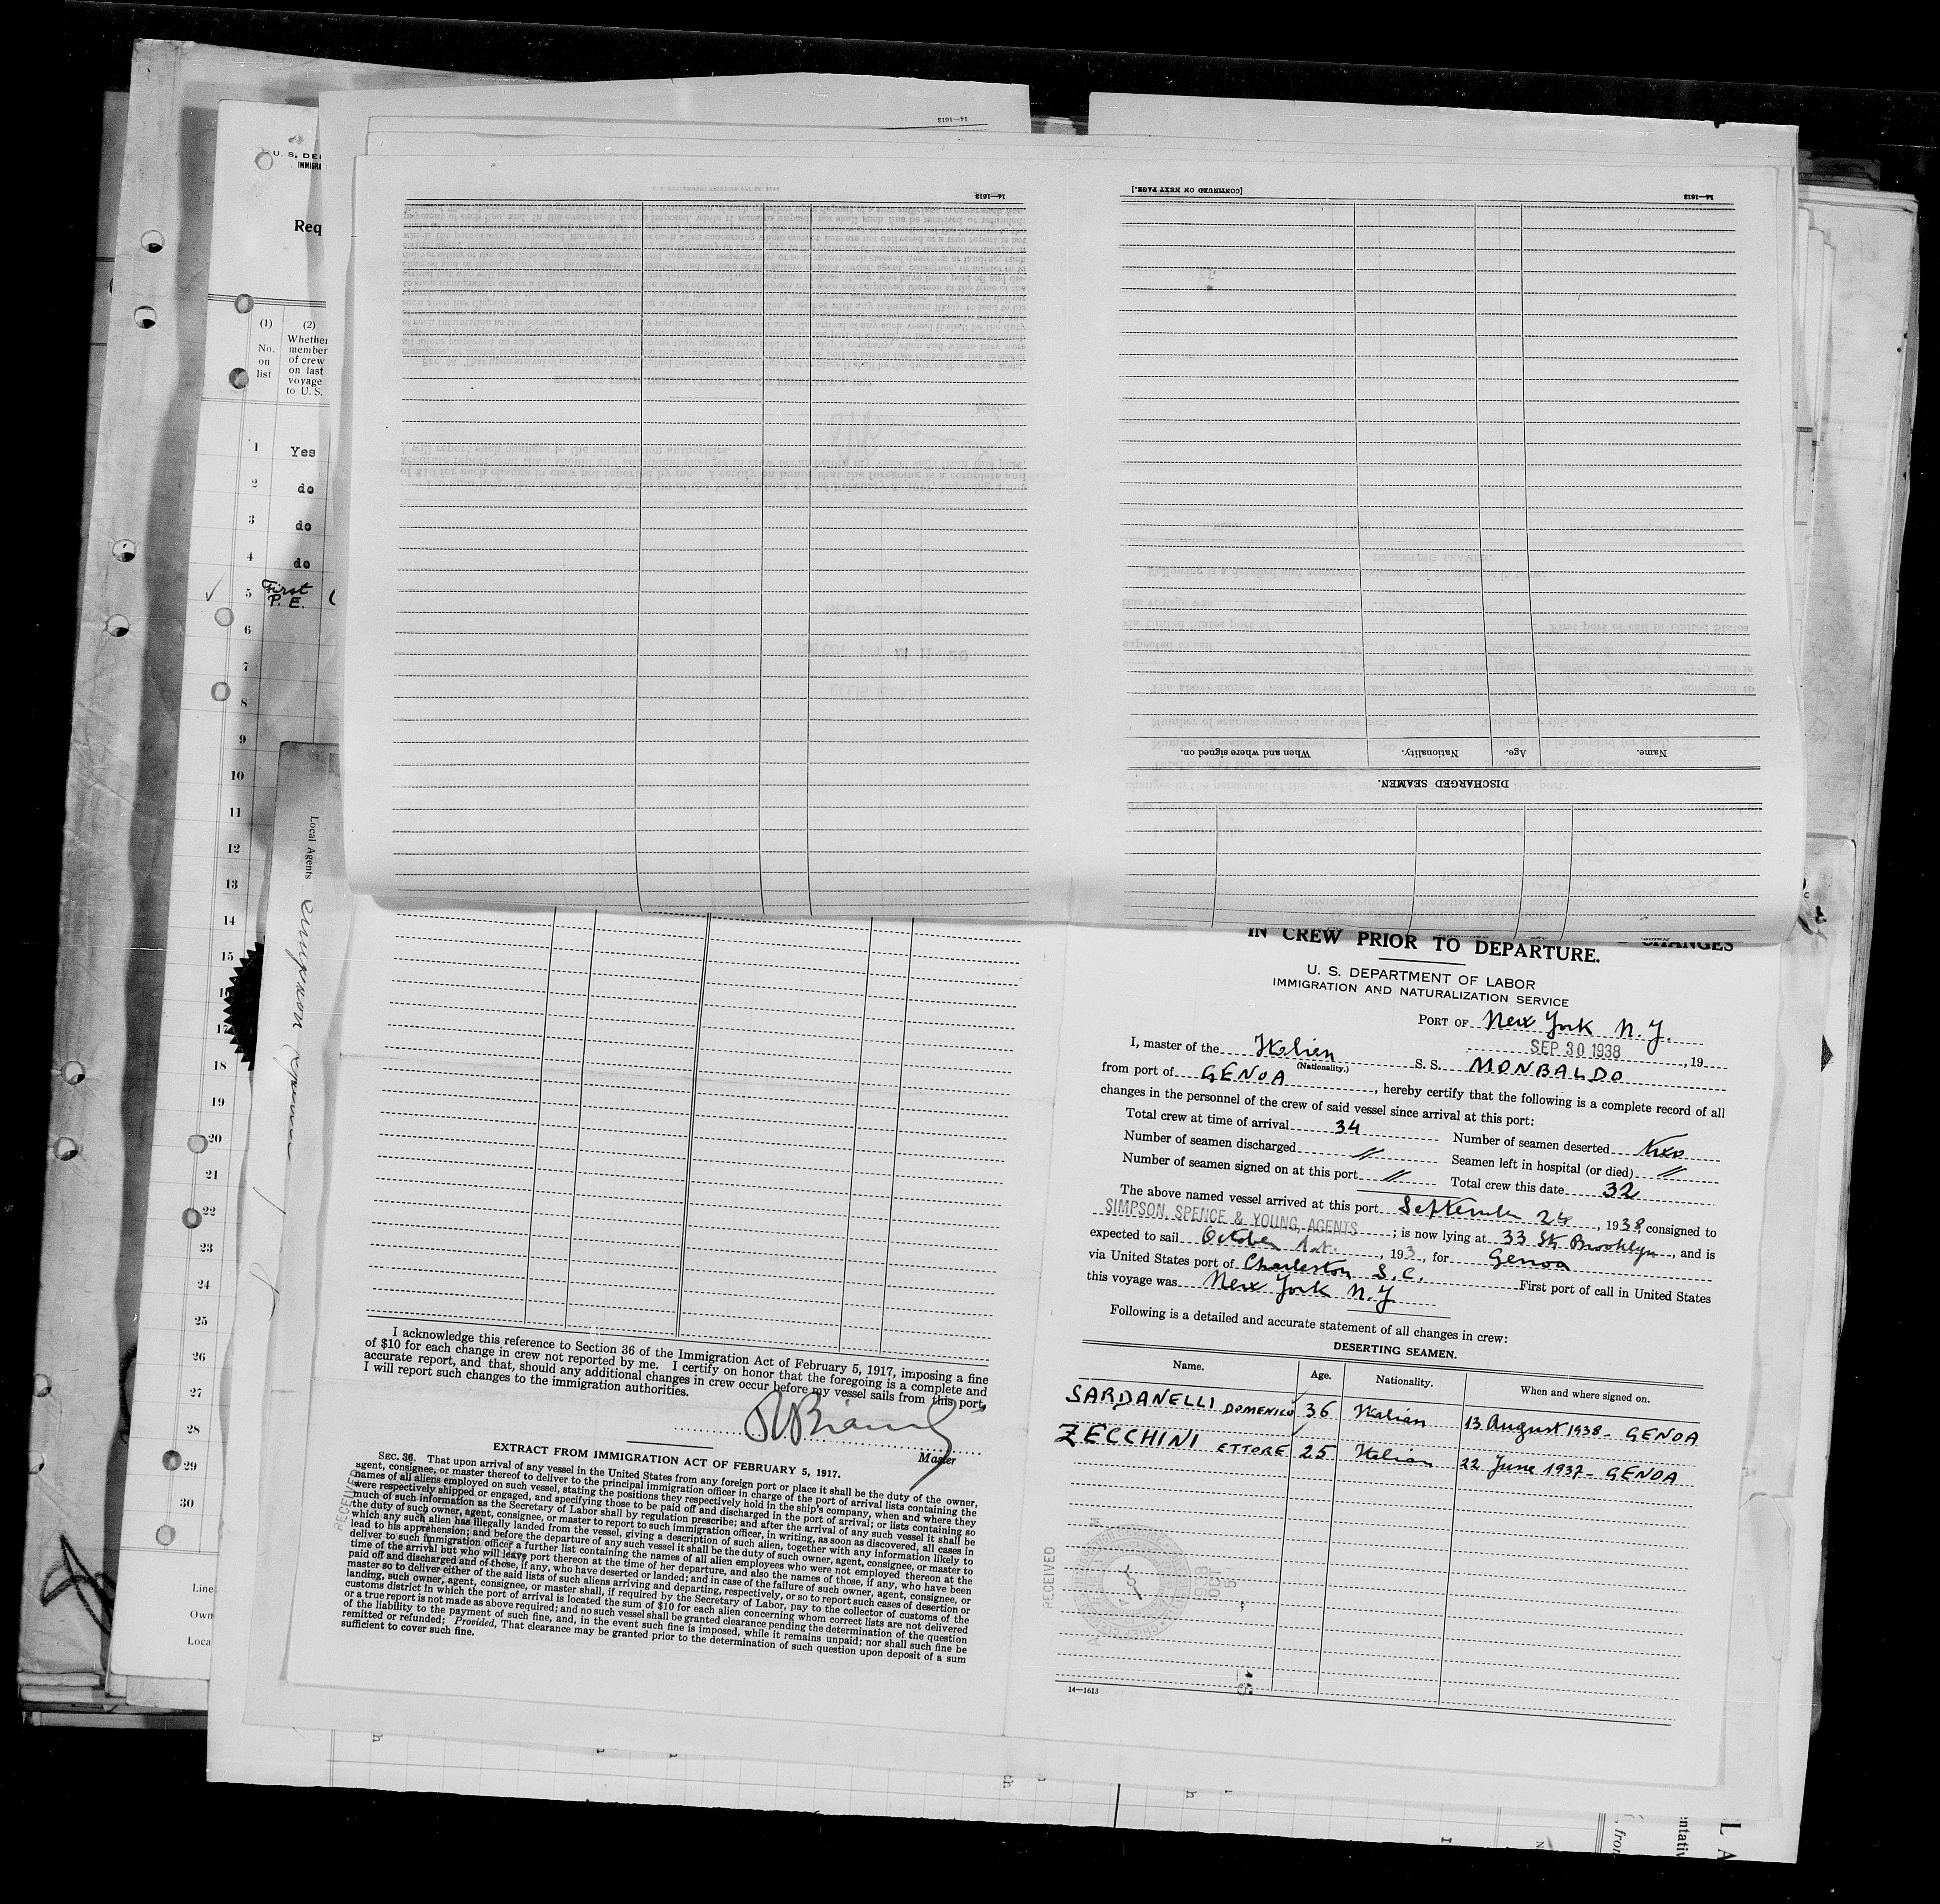 14—1613
U. S. DE
IMMIGRA
Req
(1)
No.
on
list
(2)
Whether
member
of crew
on last
voyage
to U. S.
1 Yes
2 do
3 do
4 do
5 First
P. E.
6
7
8
9
10
11
12
13
14
15
17
18
19
20
21
22
23
24
25
26
27
28
29
30
Line
Own
Loca
Local Agents
14—1613
[CONTINUED ON NEXT PAGE.]
14—1613
DISCHARGED SEAMEN.
Name. Age. Nationality. When and where signed on.
CHANGES
IN CREW PRIOR TO DEPARTURE.
U. S. DEPARTMENT OF LABOR
IMMIGRATION AND NATURALIZATION SERVICE
PORT OF New York N.Y.
SEP 30 1938, 19
I, master of the Italian S. S. MONBALDO
(Nationality.)
from port of GENOA, hereby certify that the following is a complete record of all
changes in the personnel of the crew of said vessel since arrival at this port:
Total crew at time of arrival 34 Number of seamen deserted two
Number of seamen discharged // Seamen left in hospital (or died) //
Number of seamen signed on at this port // Total crew this date 32
The above named vessel arrived at this port September 24, 1938, consigned to
SIMPSON, SPENCE & YOUNG, AGENTS; is now lying at 33 St. Brooklyn, and is
expected to sail October 1st., 193, for Genoa
via United States port of Charleston S.C. First port of call in United States
this voyage was New York N.Y.
Following is a detailed and accurate statement of all changes in crew:
DESERTING SEAMEN.
Name. Age. Nationality. When and where signed on.
SARDANELLI DOMENICO 36 Italian 13 August 1938- GENOA
ZECCHINI ETTORE 25 Italian 22 June 1937- GENOA
RECEIVED
1938
OCT
5
14—1613
I acknowledge this reference to Section 36 of the Immigration Act of February 5, 1917, imposing a fine
of $10 for each change in crew not reported by me. I certify on honor that the foregoing is a complete and
accurate report, and that, should any additional changes in crew occur before my vessel sails from this port,
I will report such changes to the immigration authorities.
Master
EXTRACT FROM IMMIGRATION ACT OF FEBRUARY 5, 1917.
SEC. 36. That upon arrival of any vessel in the United States from any foreign port or place it shall be the duty of the owner,
agent, consignee, or master thereof to deliver to the principal immigration officer in charge of the port of arrival lists containing the
names of all aliens employed on such vessel, stating the positions they respectively hold in the ship's company, when and where they
were respectively shipped or engaged, and specifying those to be paid off and discharged in the port of arrival; or lists containing so
much of such information as the Secretary of Labor shall by regulation prescribe; and after the arrival of any such vessel it shall be
the duty of such owner, agent, consignee, or master to report to such immigration officer, in writing, as soon as discovered, all cases in
which any such alien has illegally landed from the vessel, giving a description of such alien, together with any information likely to
lead to his apprehension; and before the departure of any such vessel it shall be the duty of such owner, agent, consignee, or master to
deliver to such immigration officer a further list containing the names of all alien employees who were not employed thereon at the
time of the arrival but who will leave port thereon at the time of her departure, and also the names of those, if any, who have been
paid off and discharged and of those, if any, who have deserted or landed; and in case of the failure of such owner, agent, consignee, or
master so to deliver either of the said lists of such aliens arriving and departing, respectively, or so to report such cases of desertion or
landing, such owner, agent, consignee, or master shall, if required by the Secretary of Labor, pay to the collector of customs of the
customs district in which the port of arrival is located the sum of $10 for each alien concerning whom correct lists are not delivered
or a true report is not made as above required; and no such vessel shall be granted clearance pending the determination of the question
of the liability to the payment of such fine, and, in the event such fine is imposed, while it remains unpaid; nor shall such fine be
remitted or refunded; Provided, That clearance may be granted prior to the determination of such question upon deposit of a sum
sufficient to cover such fine.
RECEIVED